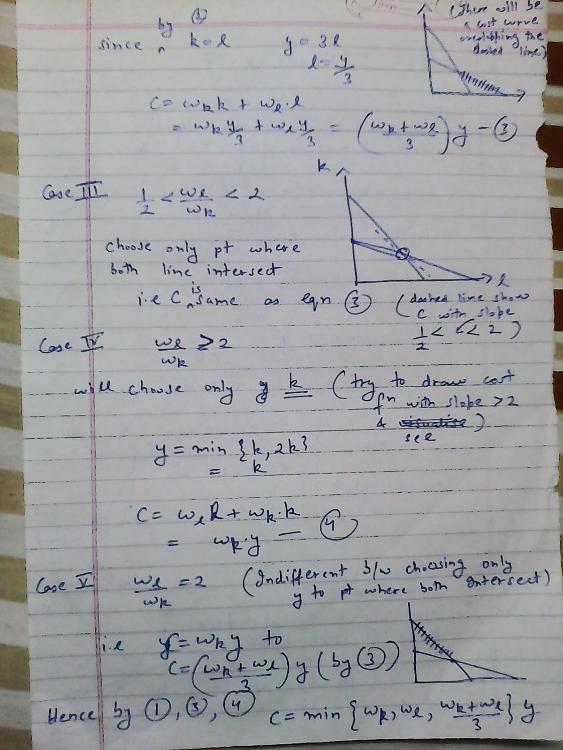 (There will be
a cost curve
overlapping the
dashed line)
by ②
since ^ k=l y = 3l
l = y/3
C = wₖk + wₗ.l
= wₖ y/3 + wₗ y/3 = (wₖ+wₗ / 3) y – ③
k
Case III 1/2 < wₗ/wₖ < 2
choose only pt where
both line intersect
l
i.e C is same as eqn ③ (dashed line show
C with slope
1/2 < < 2)
Case IV wₗ/wₖ ≥ 2
will choose only k (try to draw cost
fn with slope > 2
& see)
y = min {k, 2k}
= k
C = wₗl + wₖ.k
= wₖ.y — ④
Case V wₗ/wₖ = 2 (Indifferent b/w choosing only
y to pt where both intersect)
i.e y = wₖy to
C = (wₖ+wₗ / 3) y (by ③)
Hence by ①, ③, ④ C = min {wₖ, wₗ, wₖ+wₗ / 3} y